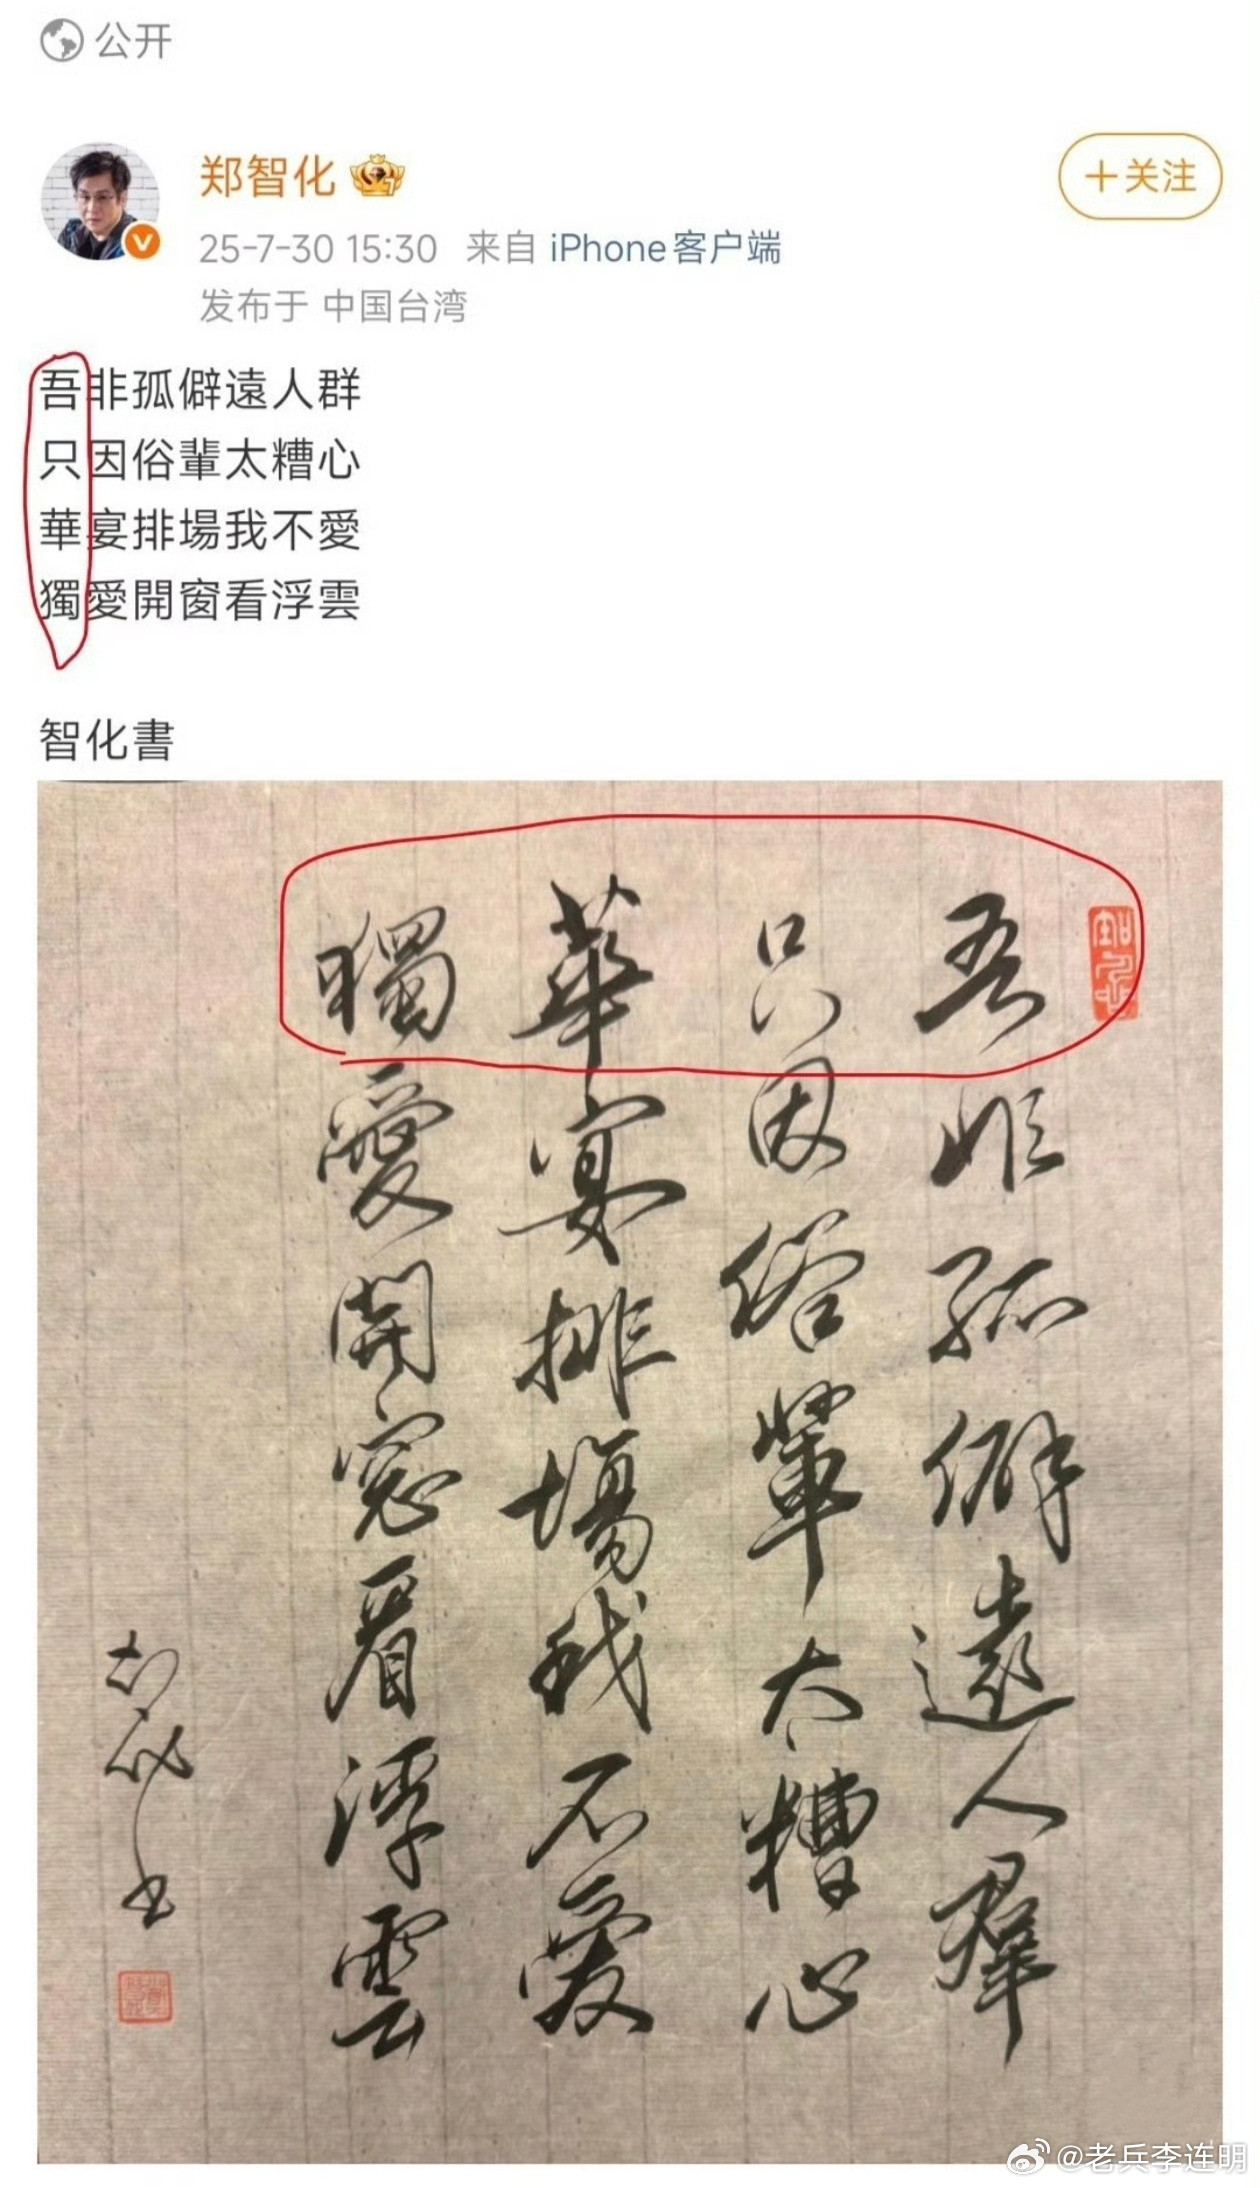 公开
郑智化
+关注
25-7-30 15:30 来自 iPhone客户端
发布于 中国台湾
吾非孤僻遠人群
只因俗輩太糟心
華宴排場我不愛
獨愛開窗看浮雲
智化書
吾非孤僻遠人羣
只因俗輩太糟心
華宴排場我不愛
獨愛開窗看浮雲
智化书
@老兵李连明